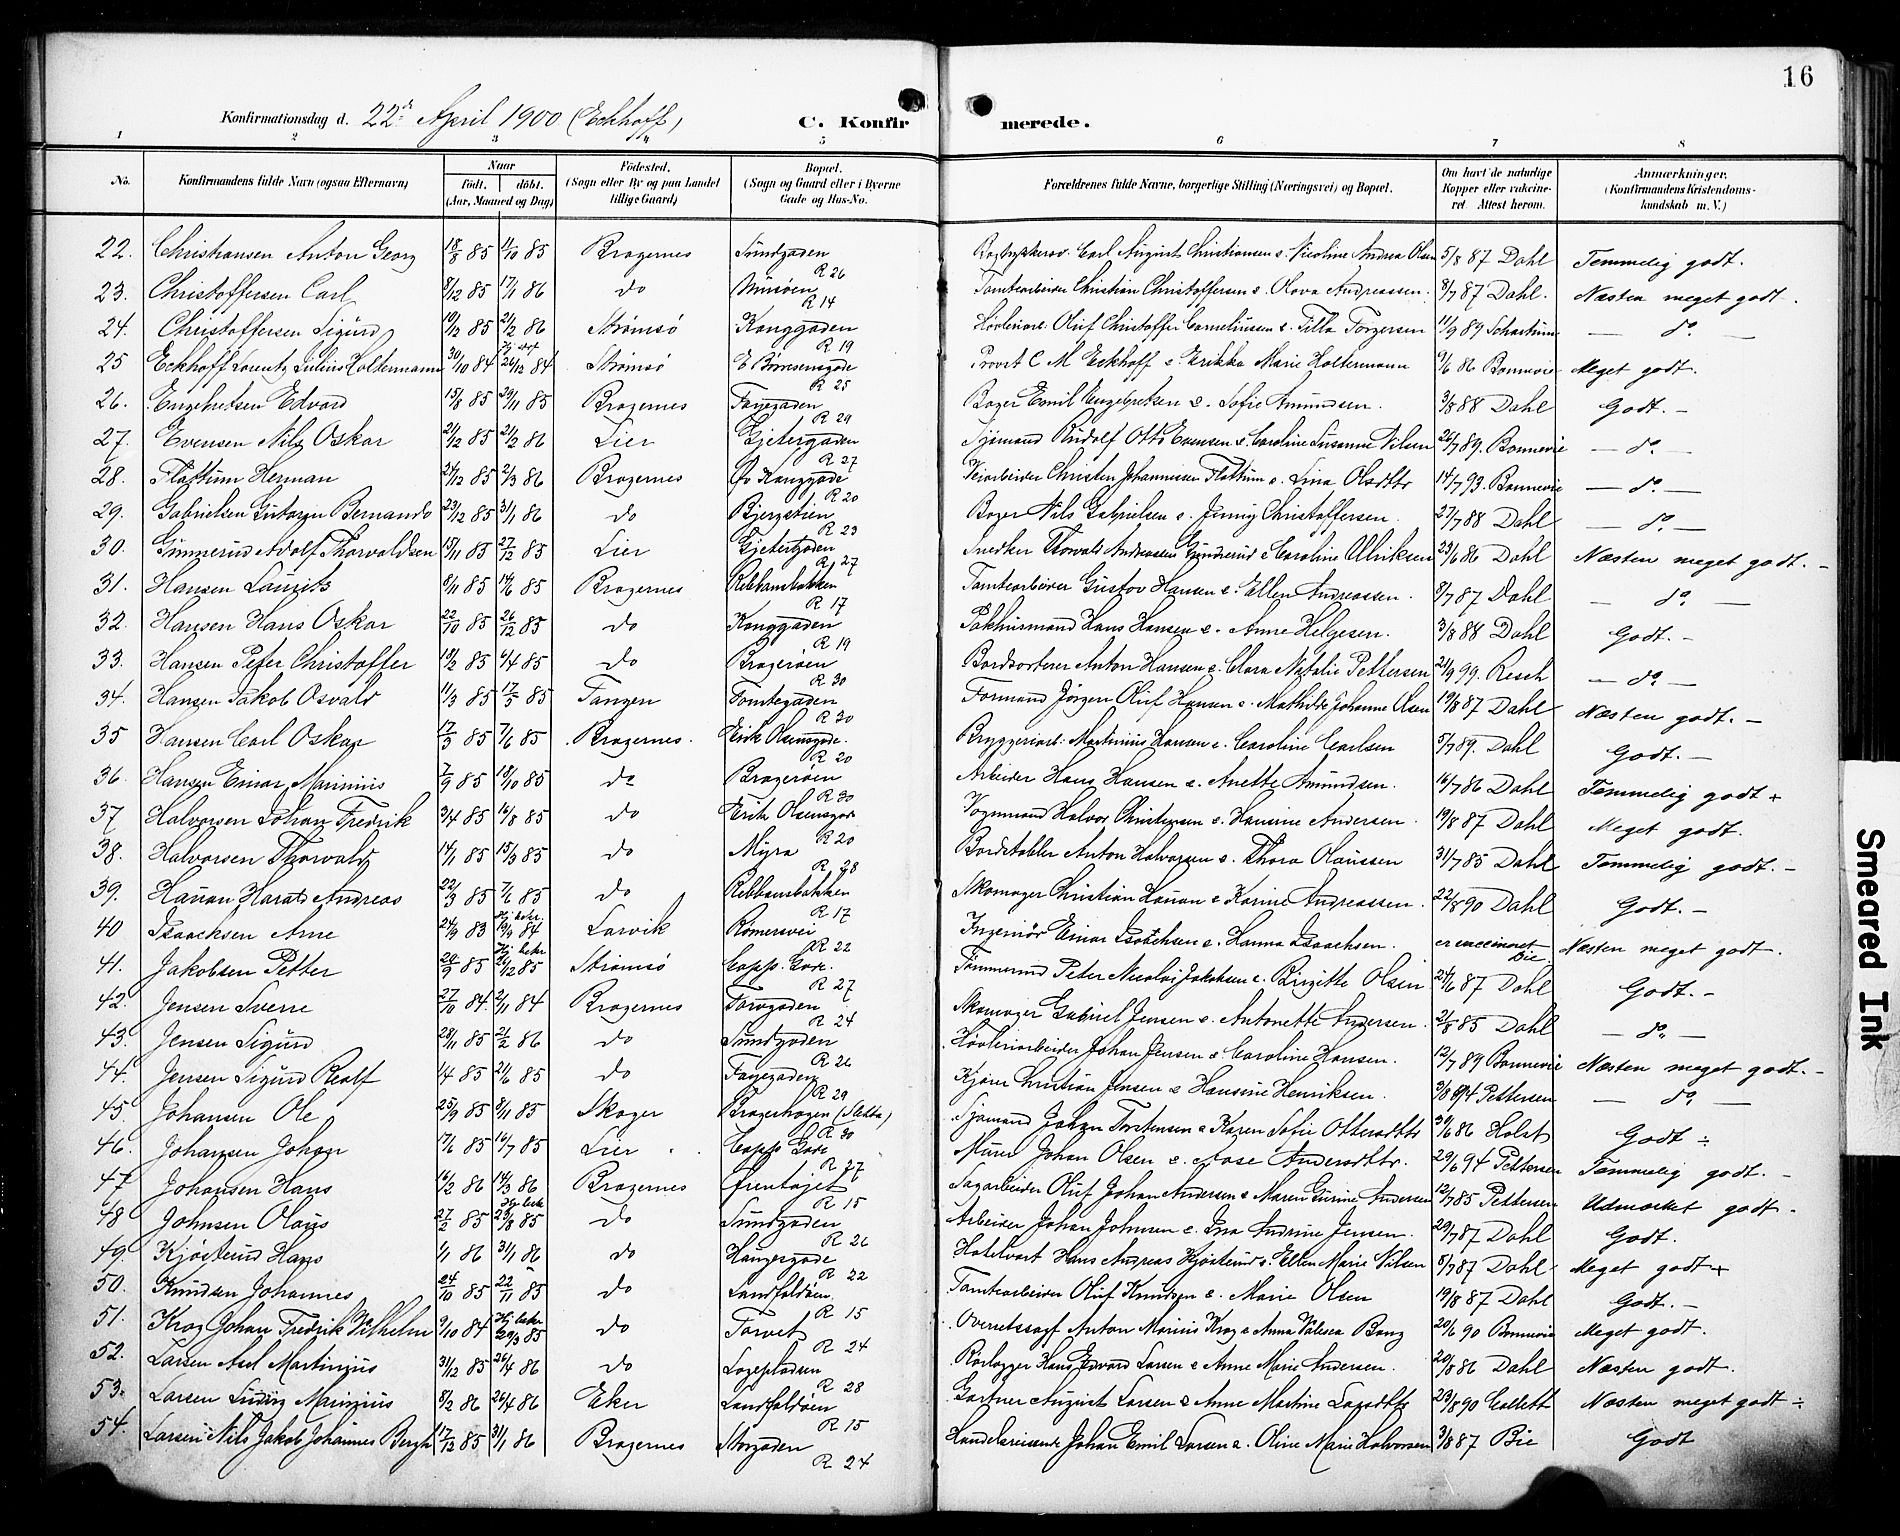 16
Konfirmationsdag d. 22de April 1900 (Eckhoff) C. Konfir merede.
1 2 3 4 5 6 7 8
No. Konfirmandens fulde Navn (ogsaa Efternavn) Naar født. døbt. (Aar, Maaned og Dag) Fødested. (Sogn eller By og paa Landet tillige Gaard) Bopæl. (Sogn og Gaard eller i Byerne Gade og Hus-No. Forældrenes fulde Navne, borgerlige Stilling (Næringsvei) og Bopæl. Om havt de naturlige Kopper eller vakcineret. Attest herom. Anmærkninger. (Konfirmandens Kristendomskundskab m. V.)
22. Christiansen Anton Georg 18/8 85 11/10 85 Bragernes Sundgaden R 26 Bogtrykkerarb. Carl August Christiansen & Nicoline Andrea Olsen 5/8 87 Dahl Temmelig godt.
23. Christoffersen Carl 8/12 85 17/1 86 do R 14 Tomtearbeider Christian Christoffersen & Olava Andreassen 8/7 87 Dahl. Næsten meget godt.
24. Christoffersen Sigurd 19/12 85 21/2 86 Strømsø Konggaden R 19 Høvleriarb. Oluf Christoffer Corneliussen & Tilla Torgersen 11/9 89 Schartum — do —
25 Eckhoff Lorentz Julius Holtermann 30/10 84 26/12 84 Strømsø E Børresensgade R 25 Provst C M Eckhoff & Erikka Marie Holtermann 9/6 86 Bonnevie Meget godt.
26. Engebretsen Edvard 15/8 85 29/11 85 Bragernes Fayegaden R 29 Bager Emil Engebretsen & Sofie Amundsen. 3/8 88 Dahl Godt. –
27. Evensen Nils Oskar 21/12 85 21/2 86 Lier Gjetergaden R 27 Sjømand Rudolf Otto Evensen & Caroline Susanne Nilsen 26/7 89. Bonnevie — do —
28. Flattum Herman 27/12 85 2/3 86 Bragernes Øv Konggade R 20 Veiarbeider Christen Johannessen Flattum & Lina Olsdtr 14/7 93. Bonnevie — do —
29. Gabrielsen Gutorm Bernando 23/12 85 31/1 86 do Bjergstien R 23 Bager Nils Gabrielsen & Jenny Christoffersen. 27/7 88 Dahl — do —
30. Gunnerud Adolf Thorvaldsen 15/11 85 27/12 85 Lier Gjetergaden R 27 Snedker Thorvald Andreassen Gunnerud & Caroline Ulriksen 23/6 86 Dahl Næsten meget godt. –
31. Hansen Laurits 8/11 85 14/6 85 Bragernes Rebbansbakken R 17 Tomtearbeider Gustav Hansen & Ellen Andreassen. 8/7 87 Dahl — do —
32. Hansen Hans Oskar 22/10 85 26/12 85 do Konggaden R 19 Pakhusmand Hans Hansen & Anne Helgesen. 3/8 88 Dahl Godt. –
33. Hansen Peter Christoffer 18/2 85 6/4 85 do Bragerøen R 30 Bordsorterer Anton Hansen & Clara Natalie Pettersen 21/9 99. Resch — do —
34. Hansen Jakob Osvald 11/3 85 17/5 85 Tangen Tomtegaden R 30 Formand Jørgen Oluf Hansen & Mathilde Johanne Olsen 19/8 87 Dahl Næsten godt. –
35 Hansen Carl Oskar 17/3 85 7/6 85 Bragernes Erik Olsensgade. R 20 Bryggeriarb. Martinius Hansen & Caroline Carlsen 5/7 89. Dahl Godt. –
36. Hansen Einar Marinius 7/9 85 18/10 85 do Bragerøen R 30 Arbeider Hans Hansen & Anette Amundsen. 16/7 86 Dahl Temmelig godt +
37 Halvorsen Johan Fredrik 3/4 85 16/8 85 do Erik Olsensgade R 20 Vognmand Halvor Christensen & Hansine Andersen. 19/8 87 Dahl Meget godt.
38. Halvorsen Thorvald 14/1 85 15/3 85 do Myra R 28 Bordstabler Anton Halvorsen & Thora Olaussen 31/7 85 Dahl Temmelig godt. –
39. Hauan Harald Andreas 22/3 85 7/6 85 do Rebbansbakken R 17 Skomager Christian Hauan & Karine Andreassen. 22/8 90 Dahl Godt. –
40 Isaachsen Arne 24/9 83 19/4 84 Larvik Rømersvei R 22 Ingeniør Einar Isaachsen & Hanna Isaachsen. er vaccineret Bie. Næsten meget godt.
41. Jakobsen Petter 29/9 85 26/12 85 Strømsø Capp. Gade. R 27 Tømmermd Peter Nicolai Jakobsen & Birgitte Olsen 24/6 87 Dahl Godt. –
42. Jensen Sverre 27/10 84. 2/11 84 Bragernes Torvgaden R 24 Skomager Gabriel Jensen & Antonette Andersen. 21/8 85 Dahl — do —
43. Jensen Sigurd 28/11 85 21/2 86 do Sundgaden R 26 Høvleriarbeider Johan Jensen & Caroline Hansen. 12/7 89 Bonnevie Næsten meget godt. –
44. Jensen Sigurd Realf 1/4 85 21/6 85 do Fayegaden R 29 Kjører Christian Jensen & Hansine Henriksen. 3/8 94 Pettersen — do —
45. Johansen Ole 25/9 85 8/11 85 Skoger Bragerhagen (Sletta) R 30 Sjømand Johan Torstensen & Karen Sofie Ottersdtr 30/6 86 Holst Godt ÷
46. Johansen Johan 17/6 85 16/7 85 Lier Capp Gade R 27 Murer Johan Olsen & Aase Andersdtr. 29/6 94 Pettersen Temmelig godt. –
47 Johansen Hans 16/2 86 14/3 86 Bragernes Ørentøjet R 15 Sagarbeider Oluf Johan Andersen & Maren Gurine Andersen 12/7 85 Pettersen Udmærket godt –
48 Johnsen Olaus 27/2 85 23/8 85 do Sundgaden R 26 Arbeider Johan Johnsen & Ina Andrine Jensen. 29/7 87 Dahl Godt.
49. Kjøsterud Hans 1/1 86 31/1 86 do Haugesgade R 22 Hotelvært Hans Andreas Kjøsterud & Ellen Marie Nilsen 5/7 87 Dahl Meget godt +
50. Knudsen Johannes 24/10 85 22/11 85 do Landfaldøen. R 15 Tomtearbeider Oluf Knudsen & Marie Olsen 19/8 87 Dahl Godt. –
51. Krog Johan Fredrik Wilhelm 9/10 84 29/3 85 do Torvet R 24 Overretssagf. Anton Marius Krog & Anna Valesca Bang 20/6 90 Bonnevie Meget godt.
52. Larsen Axel Martinius 31/12 85 26/4 86 do Logepladsen R 28 Rørlægger Hans Edvard Larsen & Anne Marie Andersen. 20/8 86 Dahl Næsten godt.
53. Larsen Ludvig Marinius 8/2 86 26/4 86 Eker Landfaldøen R 15 Gartner August Larsen & Anne Martine Larsdtr 23/8 90 Collett Næsten meget godt ÷
54. Larsen Nils Jakob Johannes Bergh 17/12 85 31/1 86 Bragernes Storgaden R 24 Handelsreisende Johan Emil Larsen & Oline Marie Halvorsen 3/8 87 Bie Godt
Smeared Ink